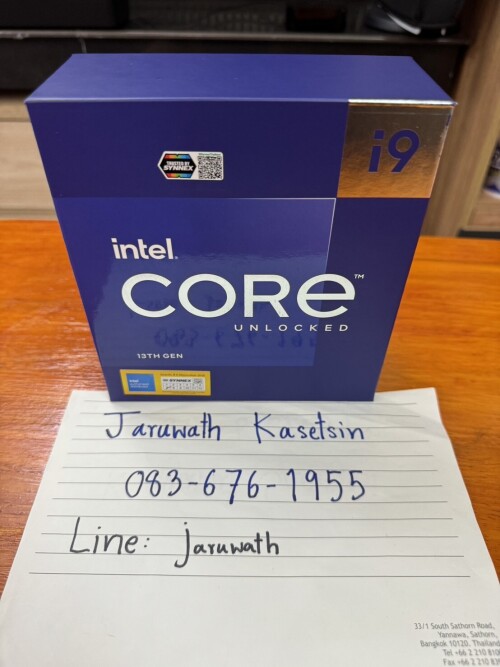 i9
TRUSTED BY
SYNNEX
intel.
CORe™
UNLOCKED
13TH GEN
intel
SYNNEX
Jaruwath Kasetsin
083-676-1955
Line: jaruwath
33/1 South Sathorn Road,
Yannawa, Sathorn,
Bangkok 10120. Thailand
Tel +66 2 210
Fax +66 2 210